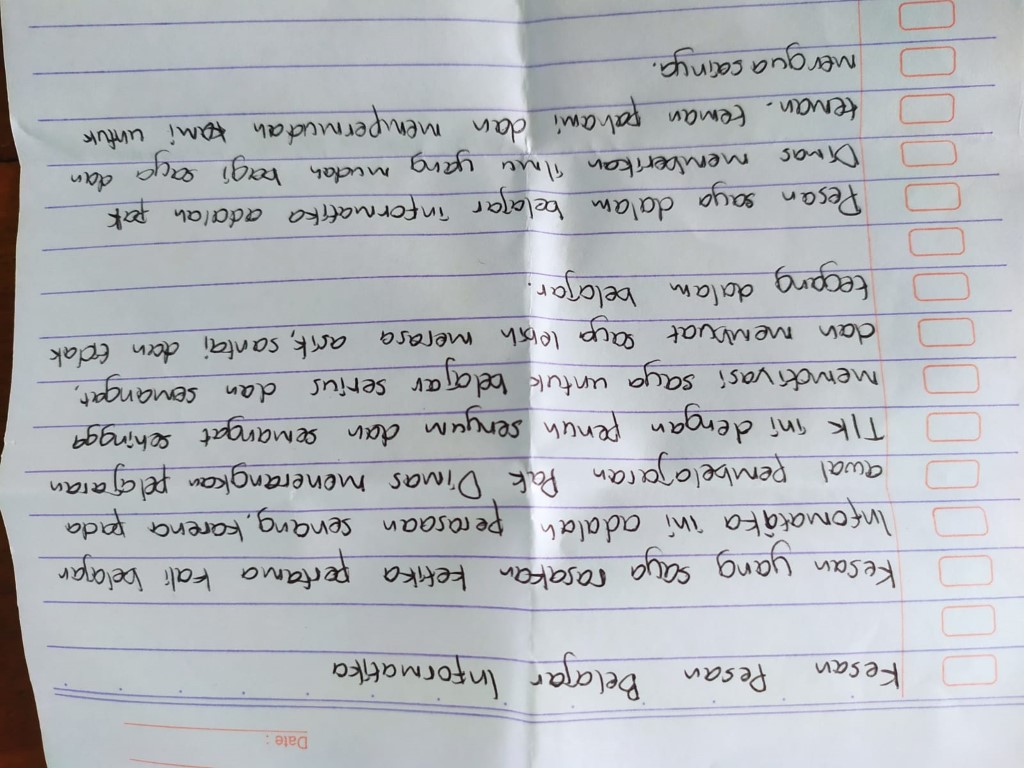 Date :
Kesan Pesan Belajar Informatika
Kesan yang saya rasakan ketika pertama kali belajar
Infomatika ini adalah perasaan senang, karena pada
awal pembelajaran Pak Dimas menerangkan pelajaran
TIK ini dengan penuh senyum dan semangat sehingga
memotivasi saya untuk belajar serius dan semangat,
dan membuat saya lebih merasa asik, santai dan tidak
tegang dalam belajar.
Pesan saya dalam belajar informatika adalah pak
Dimas memberikan ilmu yang mudah bagi saya dan
teman-teman pahami dan mempermudah kami untuk
menguasainya.